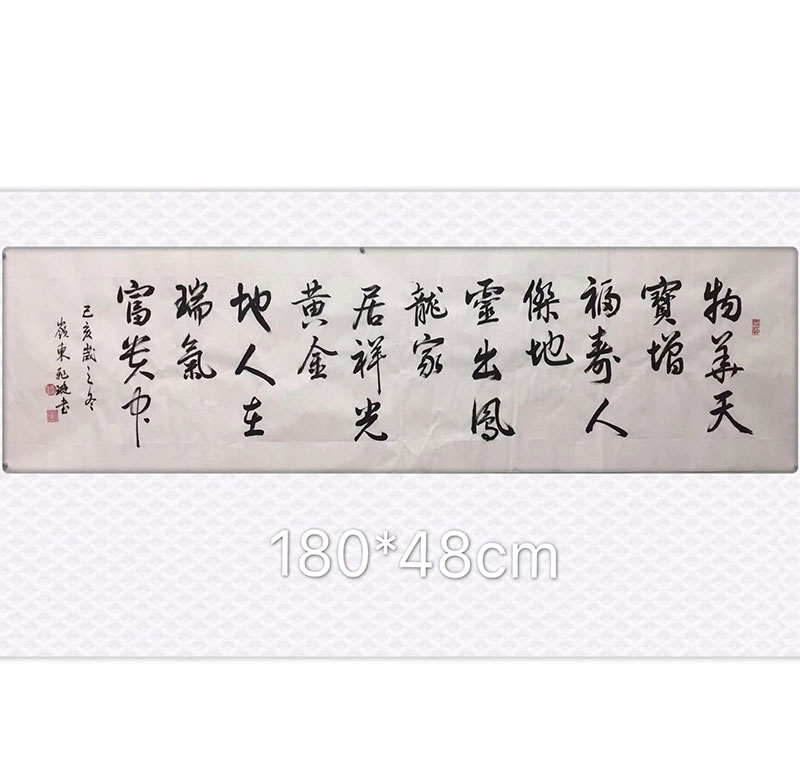 物華天
寶增
福寿人
傑地
靈出鳳
龍家
居祥光
黄金
地人在
瑞氣
富贵中
己亥歲之冬
嶺東
180*48cm